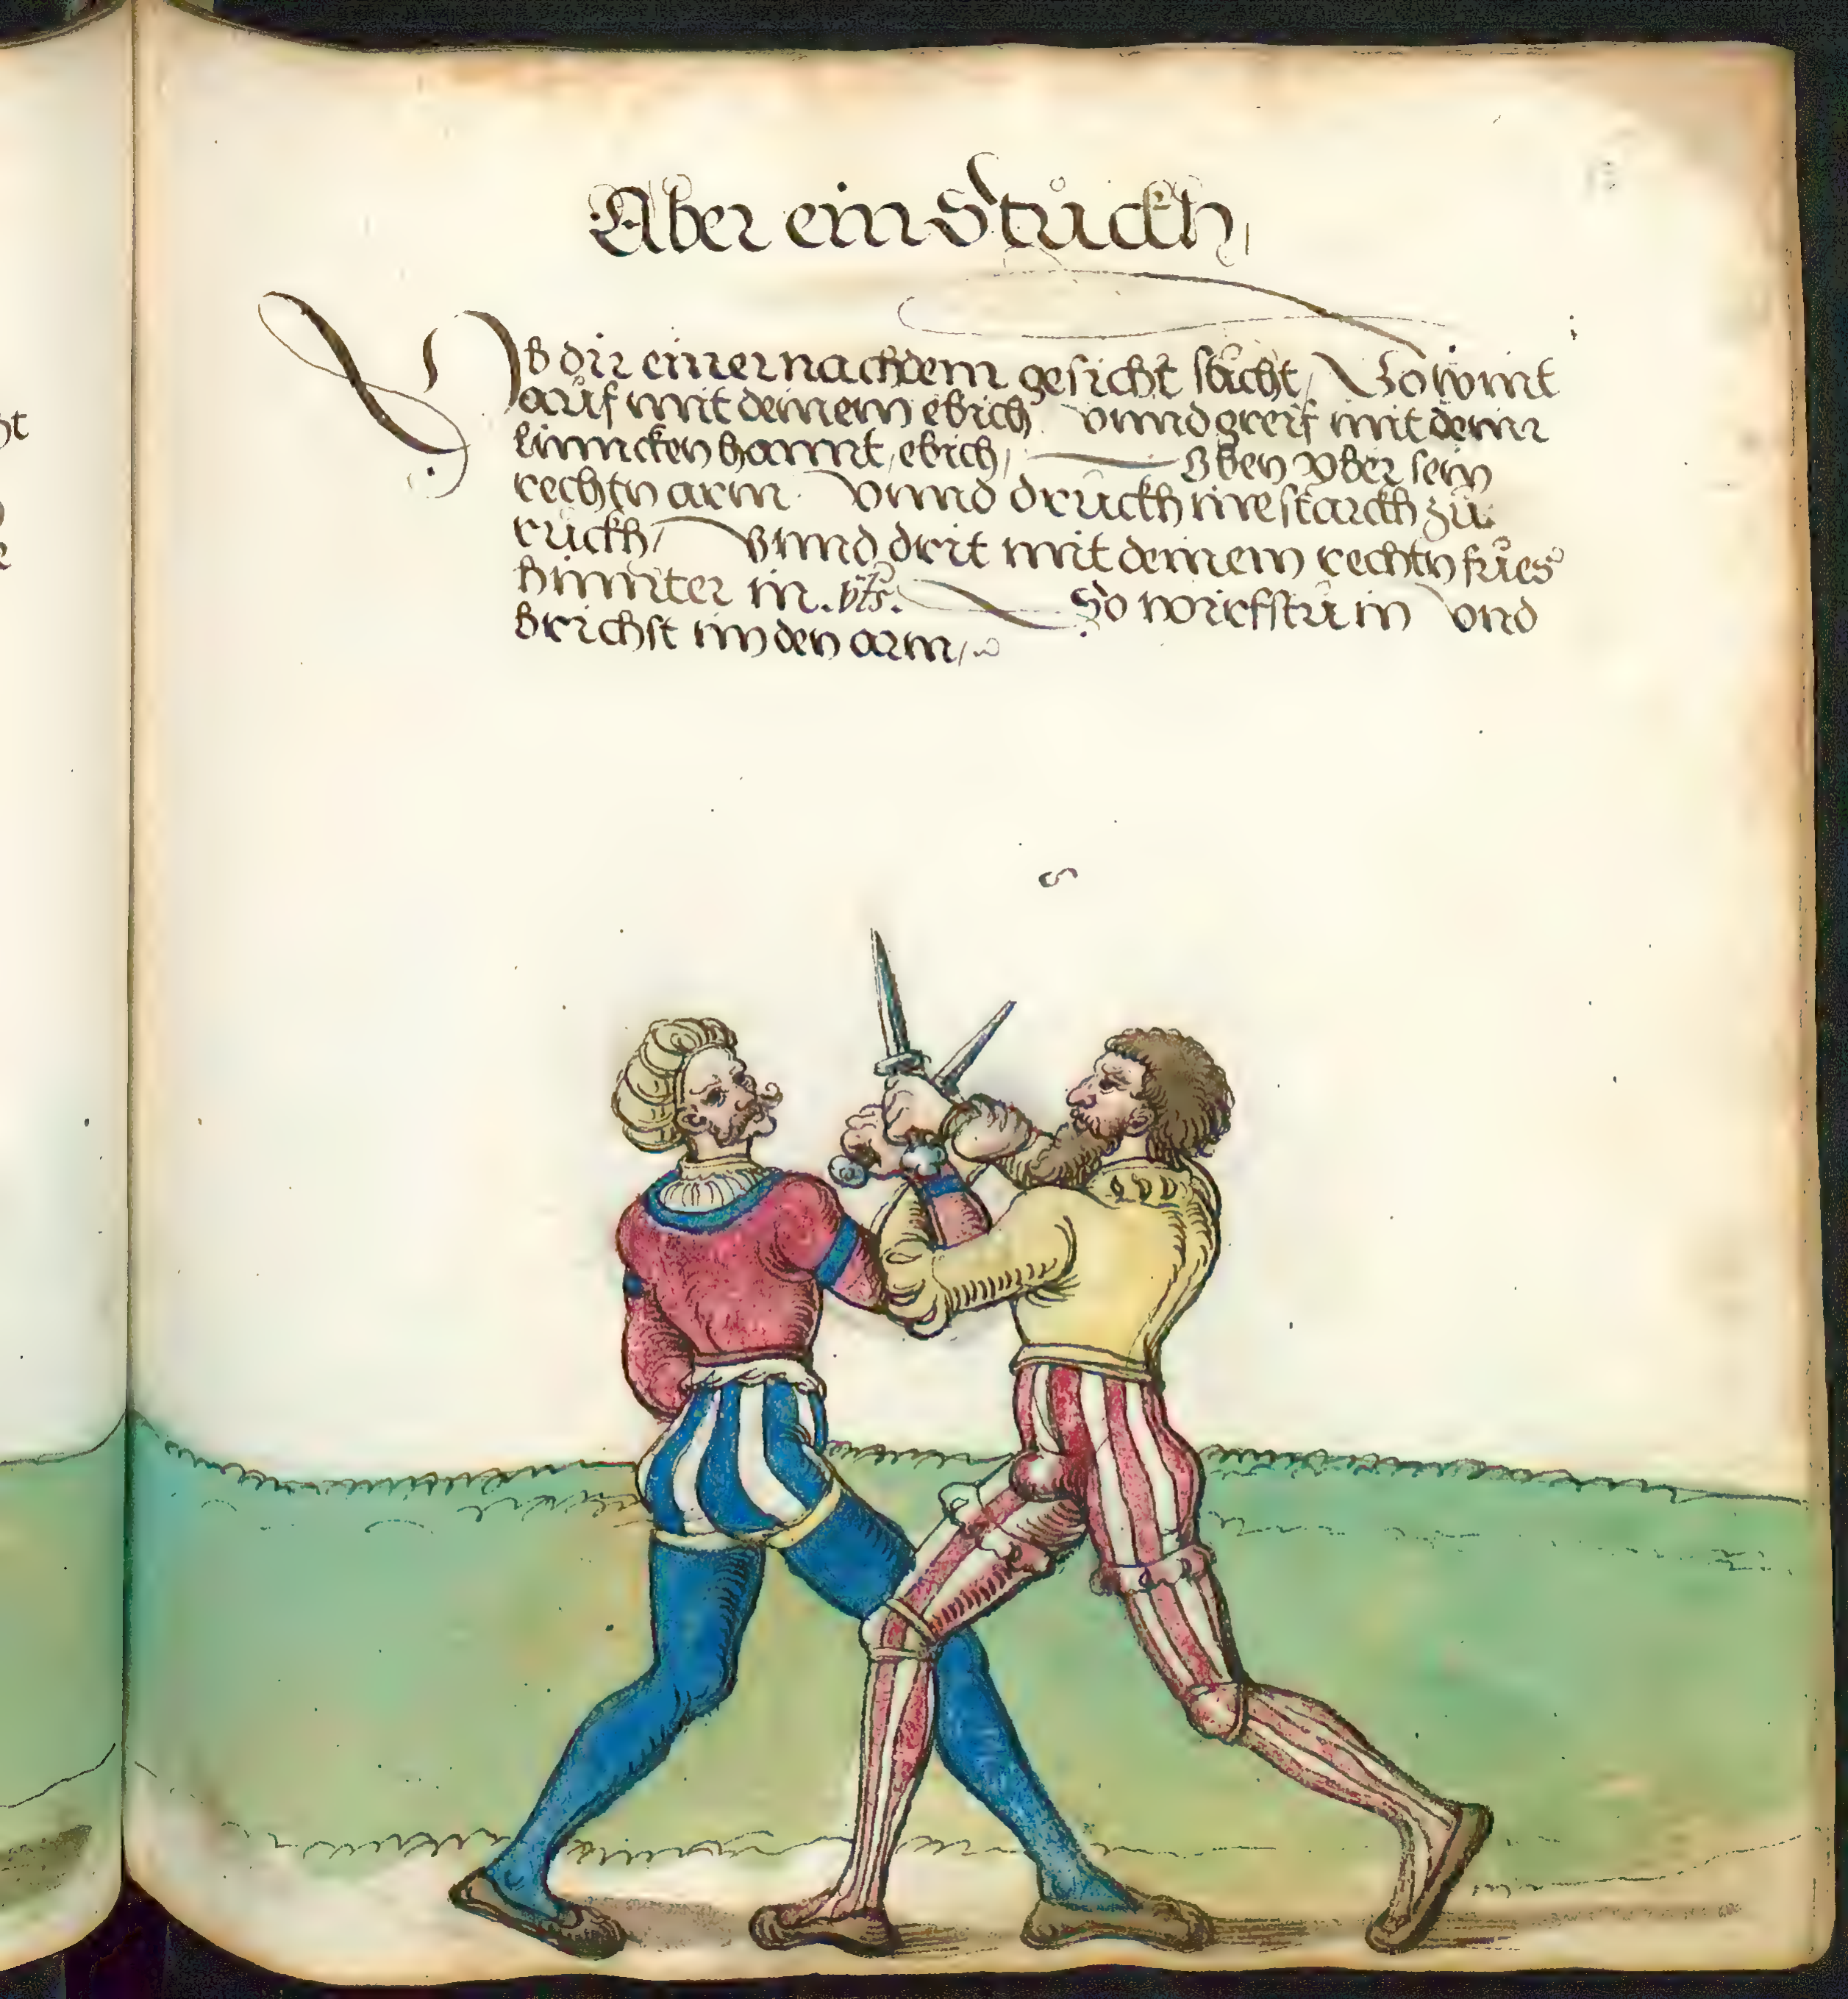 Aber ein Stuckh,
Ob dir einer nach dem gesicht sticht, So wint
auf mit deinem ebich vnnd greif mit deiner
linncken hannt, ebich, Oben vber sein
rechtn arm. vnnd druckh in starckh zu
ruckh, Vnnd drit mit deinem rechtn fues
hinnter in. So wirfstu in vnd
brichst im den arm,
ht